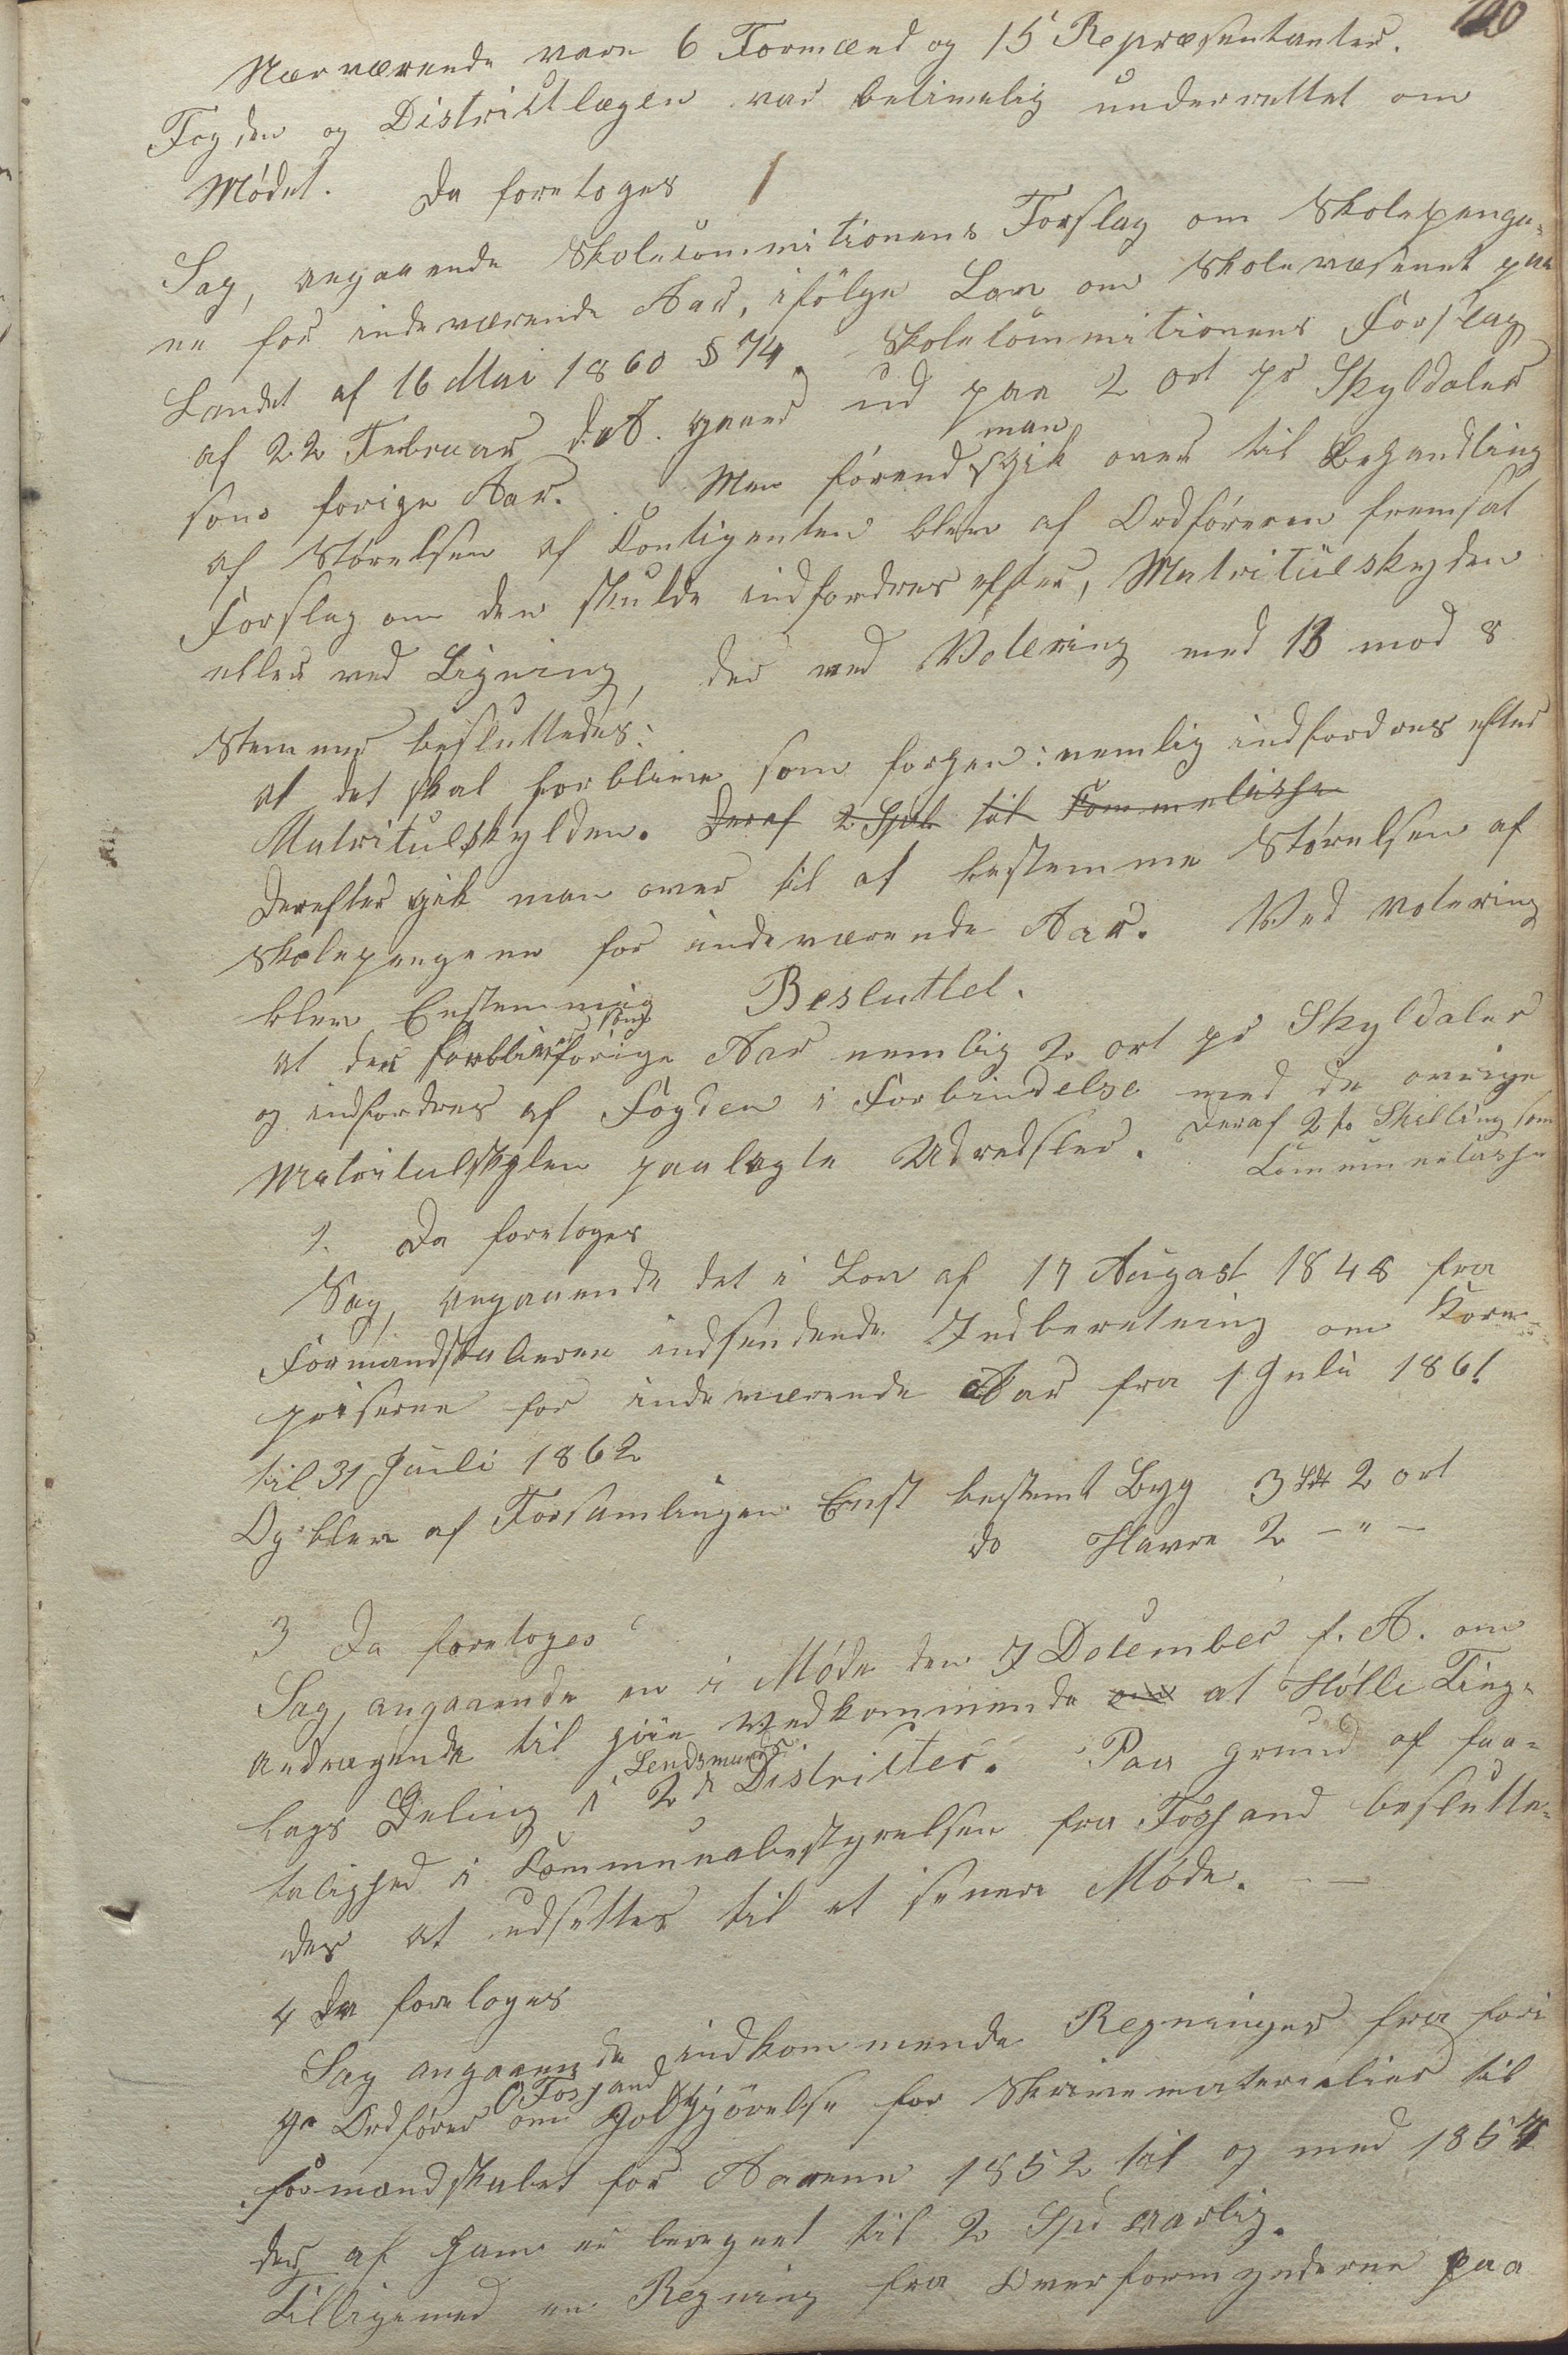 120
Nærværende vare 6 Formænd og 15 Repræsentanter.
Fogden og Districtlægen var betimelig underrettet om
Mødet. Da foretoges 1
Sag, angaaende Skolecommitionens Forslag om Skolepenge-
ne for indeværende Aar, ifölge Lov om Skolevæsenet paa
Landet af 16 Mai 1860 § 74. Skolecommitionens Forslag
af 22 Februar d.A. gaaer ud paa 2 ort pr Skyldaler
som forige Aar. Men förend man gik over til Behandling
af Störelsen af Contigenten blev af Ordföreren fremsat
Forslag om den skulde indfordres efter, Matriculskyden
eller ved Ligning, der ved Votering med 13 mod 8
Stemmer besluttedes:
at det skal forblive som forhen: nemlig indfordres efter
Matriculskylden. Deraf 2 Spd til Commecasse
Derefter gik man over til at bestemme Störelsen af
Skolepengene for indeværende Aar. Ved Votering
blev Enstemmig Besluttet.
at der forblive som forige Aar nemlig 2 ort pr Skyldaler
og indfordres af Fogden i Forbindelse med de övrige
Matriculskylen paalagte Udredsler. Deraf 2 to Skilling som
Communecasse
1. Da foretoges
Sag, angaaende det i Lov af 17 August 1848 fra
Formandskaberne indsendende Indberetning om Korn-
priserne for indeværende Aar fra 1 Juli 1861
til 31 Juli 1862
Og blev af Forsamlingen Enst bestemt Byg 3 Spd 2 ort
do Havre 2 — " —
3 Da foretoges
Sag, angaaende en i Möde den 7 December f. A. om
Andragende til höie Vedkommende om at Hölle Ting-
lags Deling i 2 Lendsmands Districter. Paa Grund af faa-
talighed i Communebestyrelsen fra Fossand beslutte-
des at udsettes til et senere Möde. — —
4 Da foretoges
Sag angaaende indkommende Regninger fra fori
ge Ordförer O Fossand om Godtgjörelse for Skrivematerialier til
Formandskabet for Aarene 1852 til og med 1857
der af ham er beregnet til 2 Spd aarlig.
Tilligemed en Regning fra Overformynderne paa